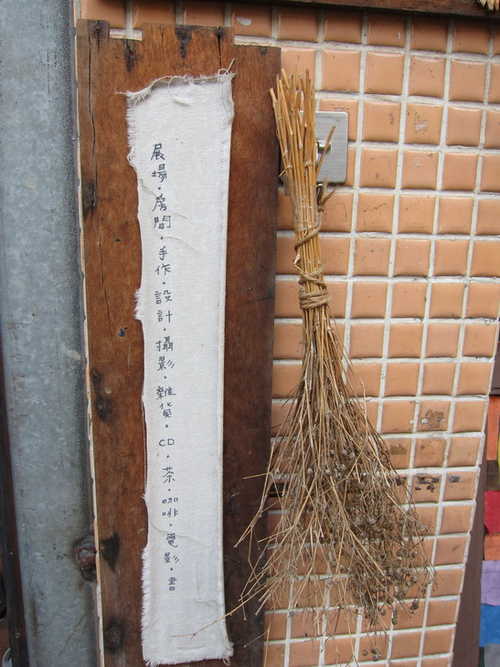 展場・房間・手作・設計・攝影・雜貨・CD・茶・咖啡・電影・書